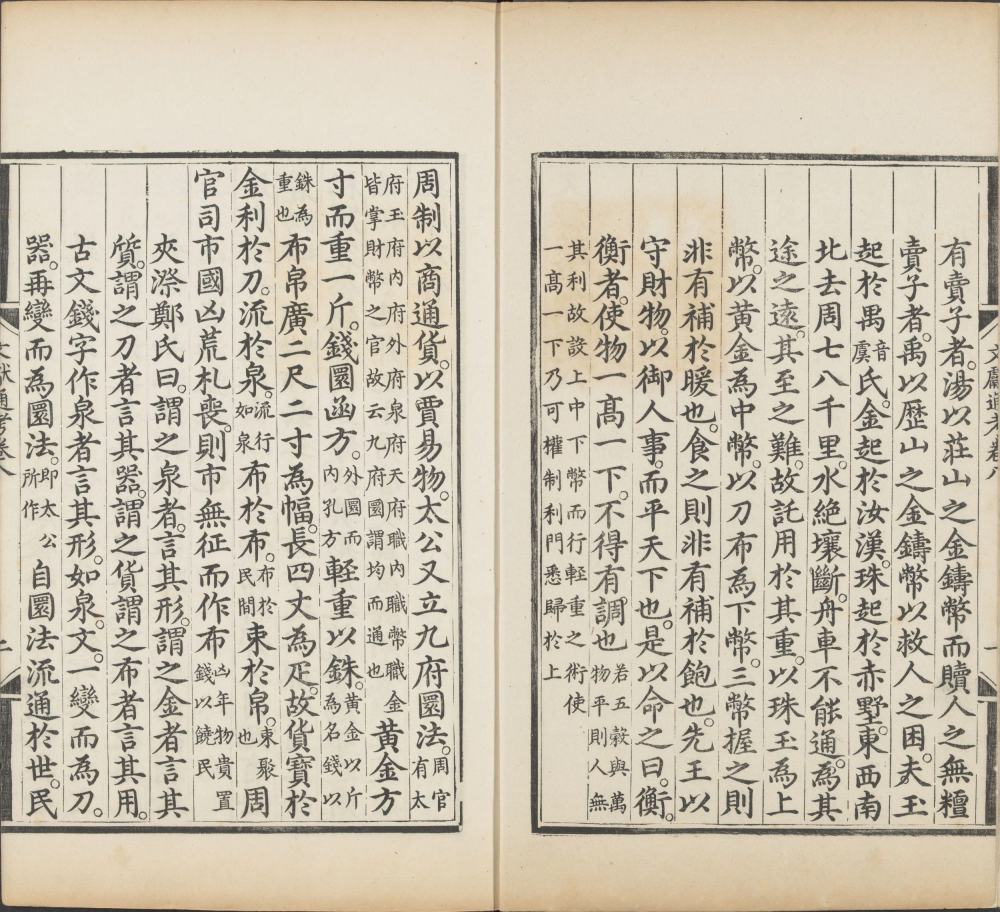 文獻通考卷八
一
有賣子者。湯以莊山之金鑄幣而贖人之無𥼷
賣子者。禹以歷山之金鑄幣以救人之困。夫玉
起於禺音虞氏。金起於汝漢。珠起於赤墅。東西南
北去周七八千里。水絕壤斷。舟車不能通。為其
途之遠。其至之難。故託用於其重。以珠玉為上
幣。以黃金為中幣。以刀布為下幣。三幣握之則
非有補於暖也。食之則非有補於飽也。先王以
守財物。以御人事。而平天下也。是以命之曰。衡。
衡者。使物一高一下。不得有調也若五穀與萬物平則人無
其利故設上中下幣而行輕重之術使一高一下乃可權制利門悉歸於上
周制以商通貨。以賈易物。太公又立九府圜法。周官有太
府玉府內府外府泉府天府職內職幣職金皆掌財幣之官故云九府圜謂均而通也黃金方
寸而重一斤。錢圜函方。外圜而內孔方輕重以銖。黃金以斤為名錢以
銖為重也布帛廣二尺二寸為幅。長四丈為疋。故貨寶於
金利於刀。流於泉。流行如泉布於布。布於民間束於帛。束聚也周
官司市國凶荒札喪。則市無征而作布凶年物貴置錢以饒民
夾漈鄭氏曰。謂之泉者。言其形。謂之金者言其
質。謂之刀者言其器。謂之貨謂之布者言其用。
古文錢字作泉者言其形。如泉。文。一變而為刀。
器。再變而為圜法。即太公所作自圜法流通於世。民
文獻通考卷八
二